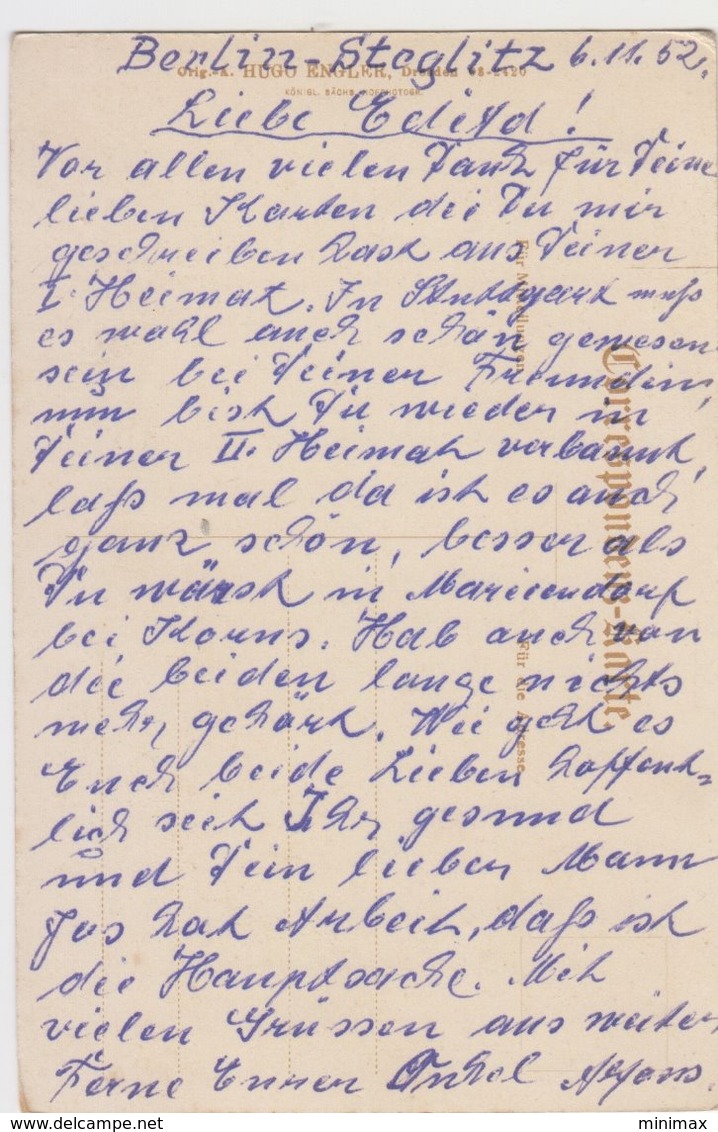 Berlin-Steglitz 6.11.52.
Orig.-A. HUGO ENGLER, Dresden
KÖNIGL. SÄCHS. HOFPHOTOGR.
Liebe Edith!
Vor allen vielen Dank für Deine
lieben Karten die Du mir
geschrieben hast aus Deiner
I. Heimat. In Stuttgart muß
es wohl auch schön gewesen
sein bei Deiner Freundin,
nun bist Du wieder in
Deiner II. Heimat verbannt,
laß mal da ist es auch
ganz schön, besser als
Du wärst in Mariendorf
bei Korns. Hab auch von
die beiden lange nichts
mehr gehört. Wie geht es
Euch beide Lieben hoffent=
lich seit Ihr gesund
und Dein lieber Mann
hat Arbeit, daß ist
die Hauptsache. Mit
vielen Grüssen aus weiter
Ferne Euer Onkel Alfons.
Correspondenz-Karte
Für Mitteilungen
Für die Adresse
minimax